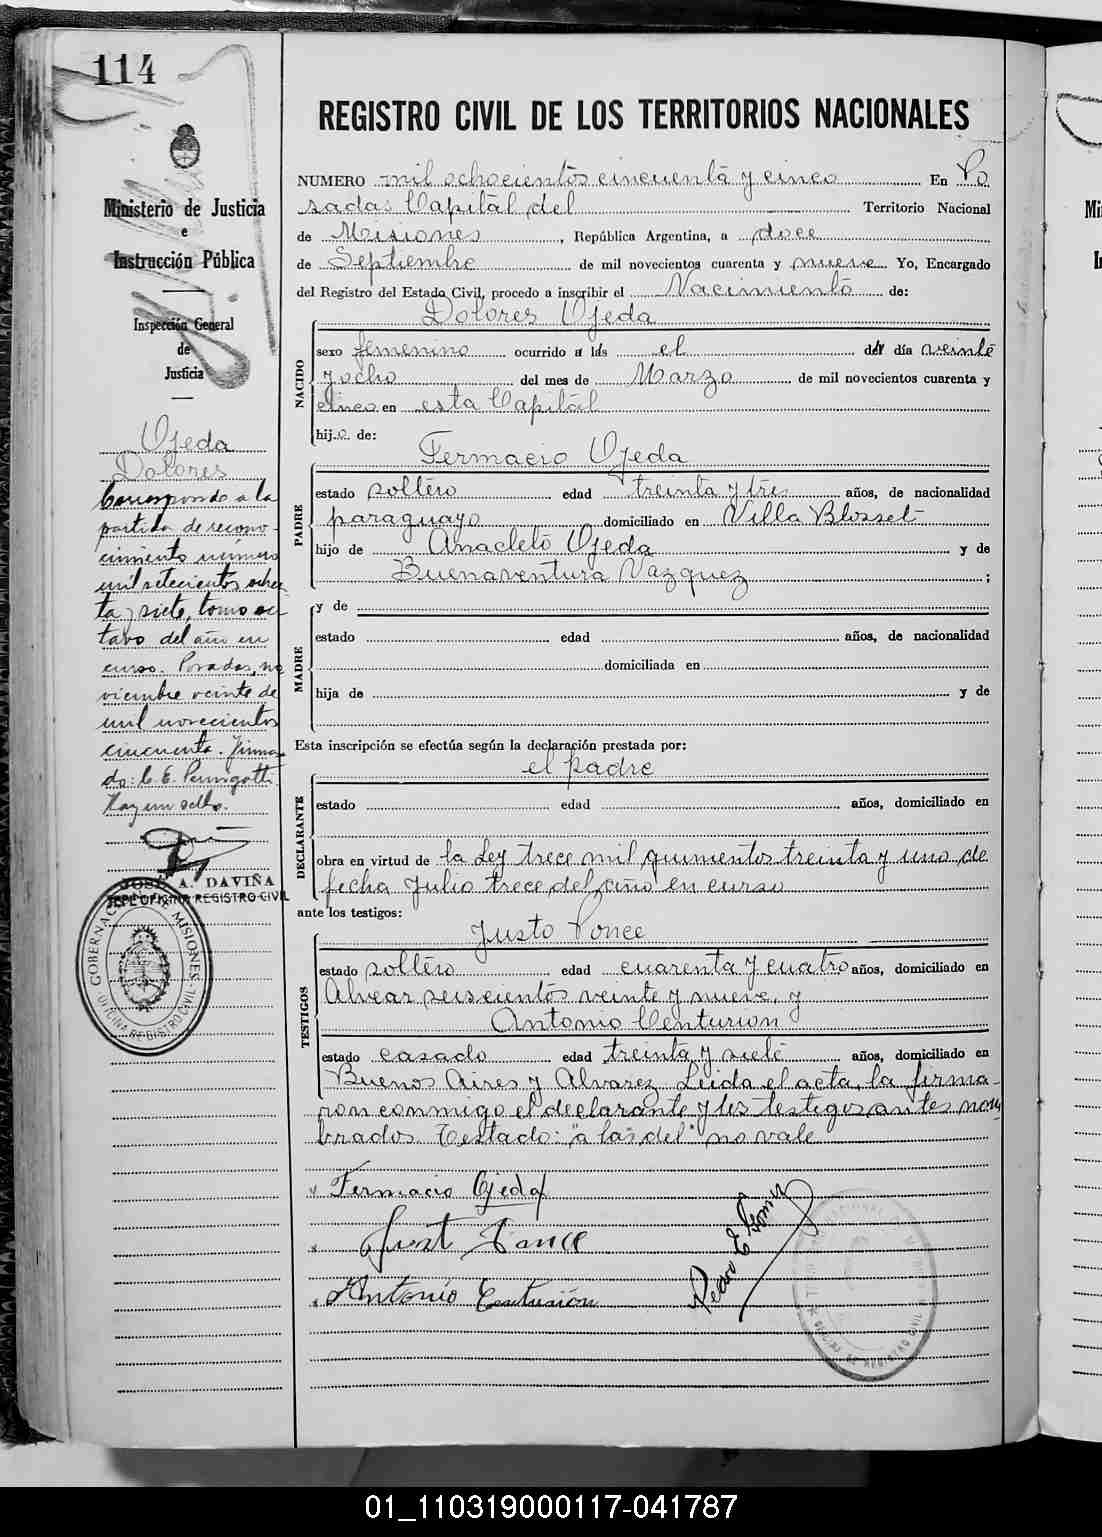 114
Ministerio de Justicia
e
Instrucción Pública
Inspección General
de
Justicia
Ojeda
Dolores
Corresponde a la
partida de recono-
cimiento número
mil setecientos ochen
ta y siete, tomo oc
tavo del año en
curso. Posadas, no
viembre veinte de
mil novecientos
cincuenta. Firma-
do: C. E.
Hay un sello.
JOSÉ A. DAVIÑA
JEFE OFICINA REGISTRO CIVIL
GOBERNACION DE MISIONES
OFICINA REGISTRO CIVIL
REGISTRO CIVIL DE LOS TERRITORIOS NACIONALES
NUMERO mil ochocientos cincuenta y cinco En Po
sadas Capital del Territorio Nacional
de Misiones, República Argentina, a doce
de Septiembre de mil novecientos cuarenta y nueve Yo, Encargado
del Registro del Estado Civil, procedo a inscribir el Nacimiento de:
Dolores Ojeda
NACIDO
sexo femenino ocurrido a las el del día veinte
y ocho del mes de Marzo de mil novecientos cuarenta y
cinco en esta Capital
hij a de:
Fermacio Ojeda
PADRE
estado soltero edad treinta y tres años, de nacionalidad
paraguayo domiciliado en Villa Blosset
hijo de Anacleto Ojeda y de
Buenaventura Vazquez ;
MADRE
y de
estado edad años, de nacionalidad
domiciliada en
hija de y de
Esta inscripción se efectúa según la declaración prestada por:
el padre
DECLARANTE
estado edad años, domiciliado en
obra en virtud de la Ley trece mil quinientos treinta y uno de
fecha Julio trece del año en curso
ante los testigos:
Justo Ponce
TESTIGOS
estado soltero edad cuarenta y cuatro años, domiciliado en
Alvear seiscientos veinte y nueve, y
Antonio Centurion
estado casado edad treinta y siete años, domiciliado en
Buenos Aires y Alvarez Leida el acta, la firma-
ron conmigo el declarante y los testigos antes nom
brados Testado: "a las, del" no vale
Fermacio Ojeda
Just Ponce
Antonio Centurión
Pedro E Gomez
OFICINA DE REGISTRO CIVIL
01_110319000117-041787